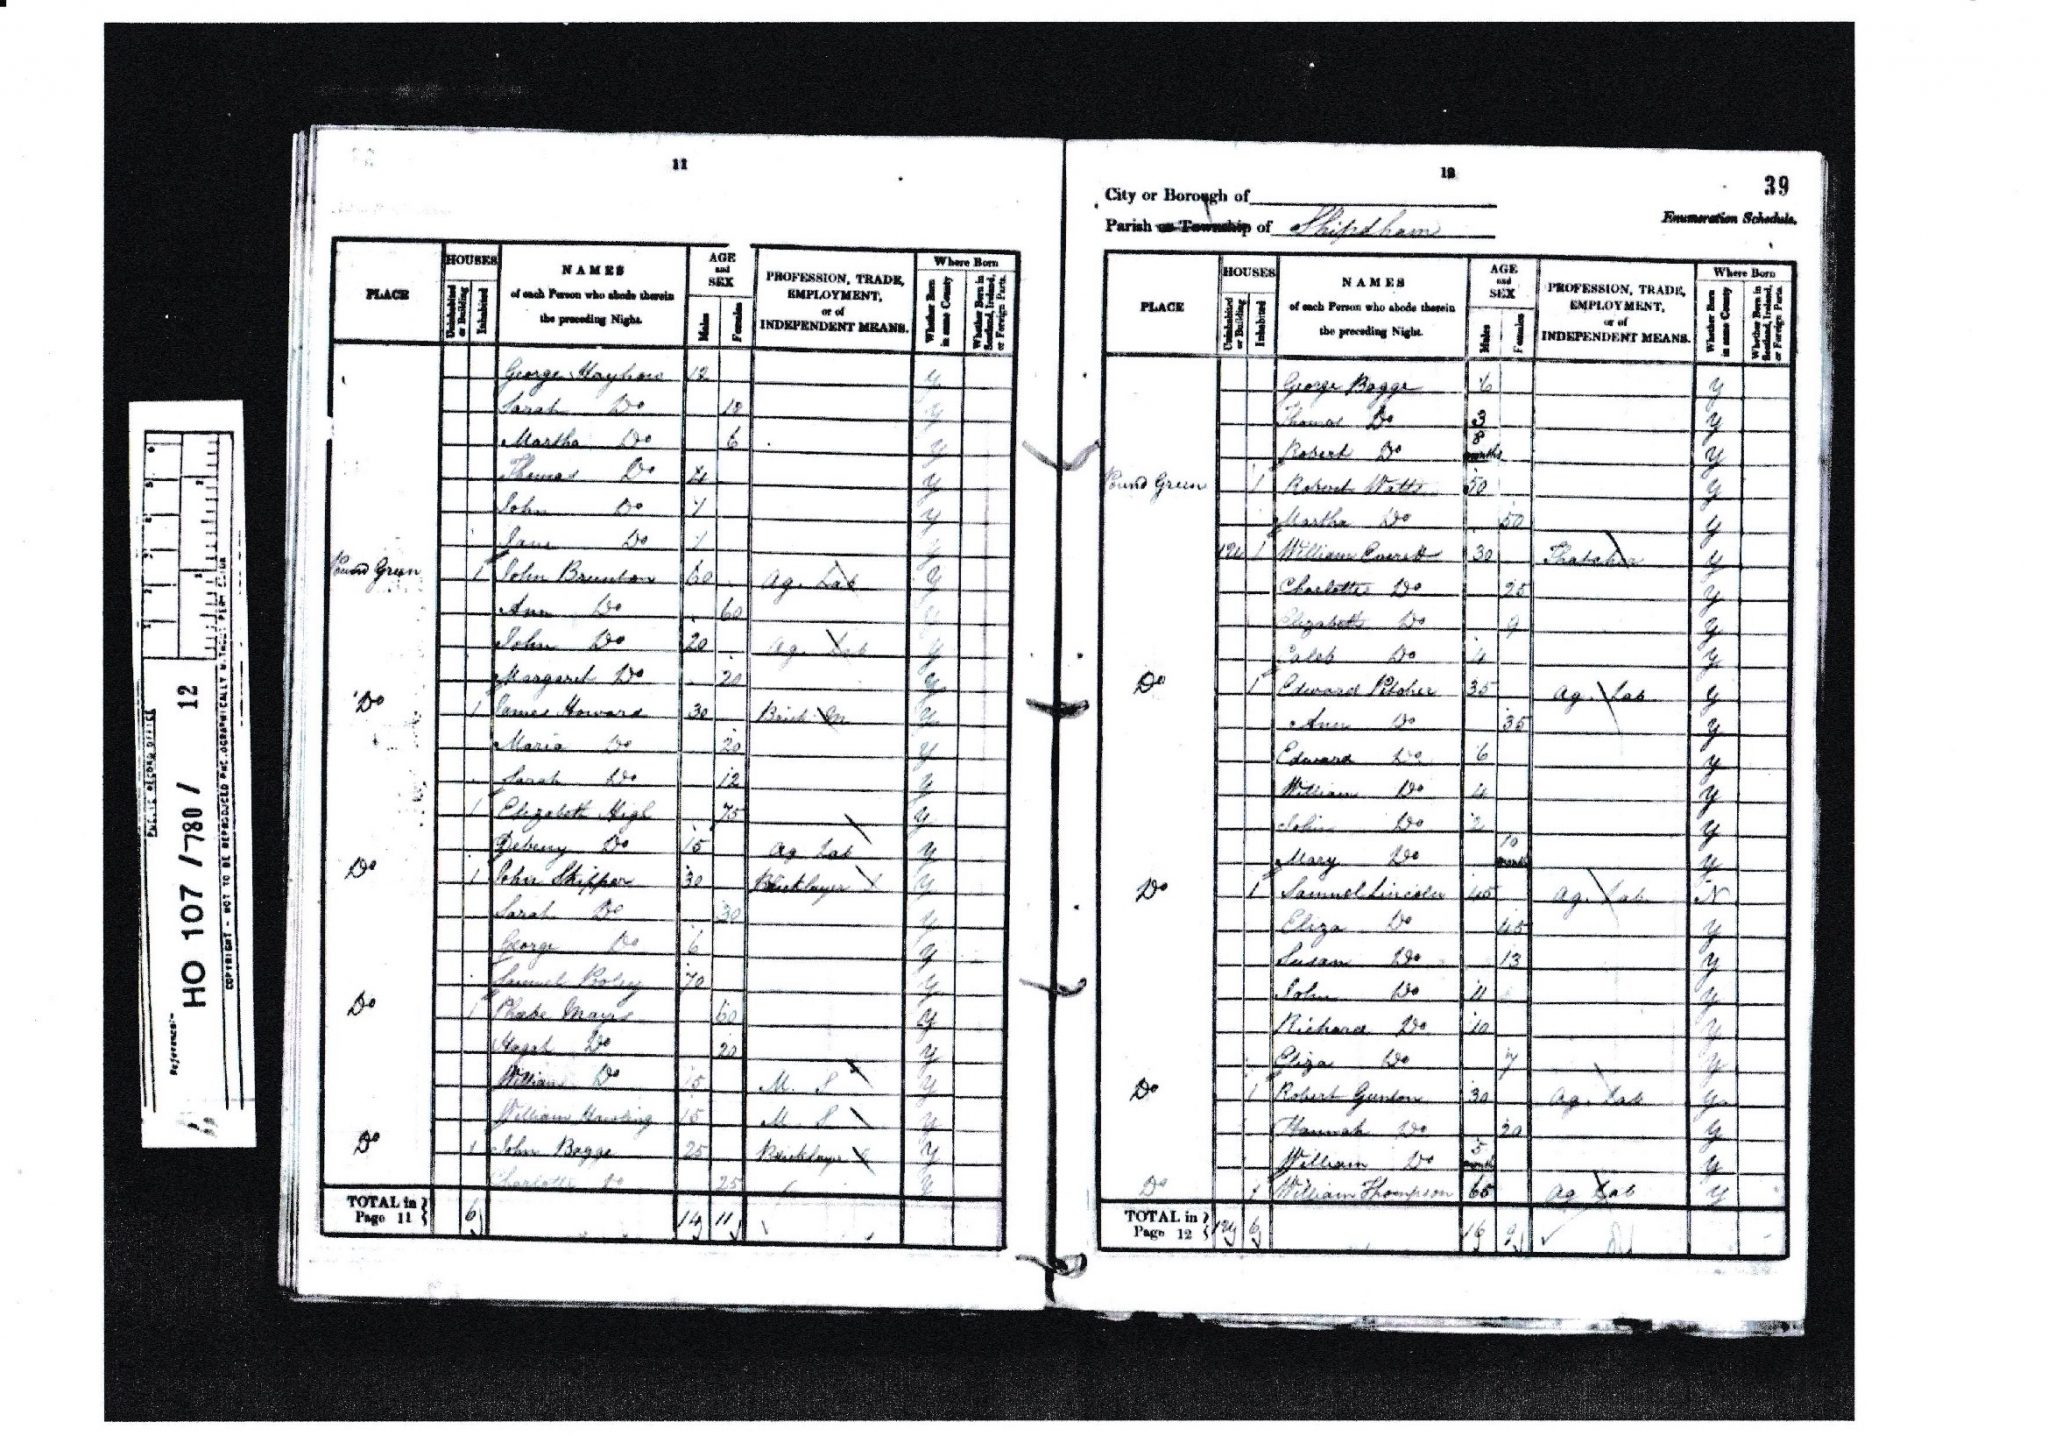 PUBLIC RECORD OFFICE
Reference:-
HO 107 / 780 / 12
COPYRIGHT - NOT TO BE REPRODUCED
11
PLACE HOUSES Uninhabited or Building Inhabited
NAMES of each Person who abode therein the preceding Night.
AGE and SEX Males Females
PROFESSION, TRADE, EMPLOYMENT, or of INDEPENDENT MEANS.
Where Born Whether Born in same County Whether Born in Scotland, Ireland, or Foreign Parts.
George Mayhow 12 y
Sarah Do 12 y
Martha Do 6 y
Thomas Do 4 y
John Do y
Jane Do y
Pound Green 1 John Brunton 60 Ag. Lab y
Ann Do 60 y
John Do 20 Ag. Lab y
Margaret Do 20 y
Do 1 James Howard 30 Brick M y
Maria Do 20 y
Sarah Do 12 y
1 Elizabeth High 75 y
Do 15 Ag Lab y
Do 1 John Skipper 30 Bricklayer y
Sarah Do 30 y
George Do 6 y
Samuel Pooley 70 y
Do 1 Phoebe 60 y
Do 20 y
William Do 15 M. S y
William 15 M. S y
Do 1 John Bagge 25 Bricklayer y
Charlotte Do 25 y
TOTAL in Page 11 6 14 11
12
39
City or Borough of
Parish or Township of Shipdham
Enumeration Schedule.
PLACE HOUSES Uninhabited or Building Inhabited
NAMES of each Person who abode therein the preceding Night.
AGE and SEX Males Females
PROFESSION, TRADE, EMPLOYMENT, or of INDEPENDENT MEANS.
Where Born Whether Born in same County Whether Born in Scotland, Ireland, or Foreign Parts.
George Bagge 6 y
Thomas Do 3 y
Robert Do 8 months y
Pound Green 1 Robert Watts 50 y
Martha Do 50 y
1 William Everett 30 Thatcher y
Charlotte Do 25 y
Elizabeth Do 9 y
Caleb Do 4 y
Do 1 Edward Pitcher 35 Ag. Lab y
Ann Do 35 y
Edward Do 6 y
William Do 4 y
John Do 2 y
Mary Do 10 months y
Do 1 Samuel Lincoln 45 Ag. Lab N
Eliza Do 45 y
Susan Do 13 y
John Do 11 y
Richard Do 10 y
Eliza Do 7 y
Do 1 Robert Gunton 30 Ag. Lab y
Hannah Do 20 y
William Do 5 month y
Do 1 William Thompson 65 Ag Lab y
TOTAL in Page 12 6 16 9